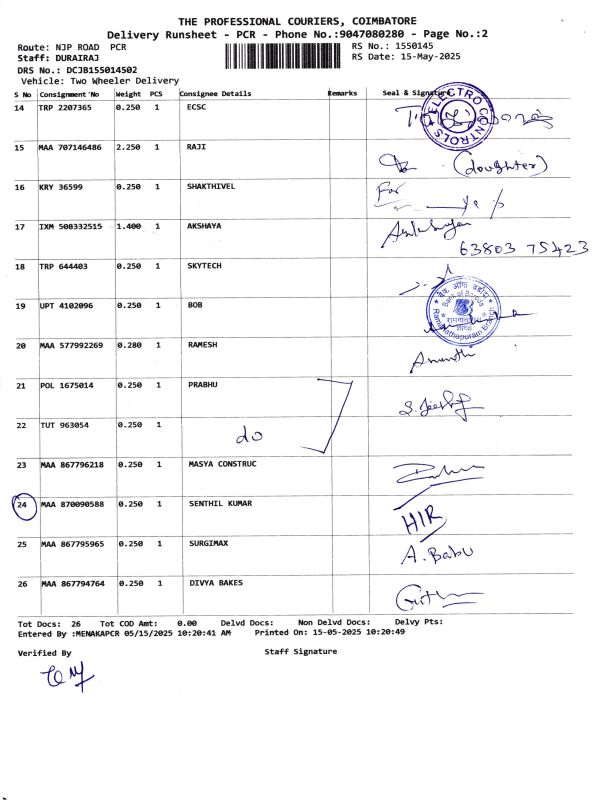 THE PROFESSIONAL COURIERS, COIMBATORE
Delivery Runsheet - PCR - Phone No.:9047080280 - Page No.:2
Route: NJP ROAD PCR
RS No.: 1550145
Staff: DURAIRAJ
RS Date: 15-May-2025
DRS No.: DCJB155014502
Vehicle: Two Wheeler Delivery
S No Consignment No Weight PCS Consignee Details Remarks Seal & Signature
14 TRP 2207365 0.250 1 ECSC
ELECTRO CONTROLS
15 MAA 707146486 2.250 1 RAJI
(daughter)
16 KRY 36599 0.250 1 SHAKTHIVEL
For
17 IXM 508332515 1.400 1 AKSHAYA
63803 75423
18 TRP 644403 0.250 1 SKYTECH
19 UPT 4102096 0.250 1 BOB
बैंक ऑफ बड़ौदा
Bank of Baroda
Ramanathapuram Branch
20 MAA 577992269 0.280 1 RAMESH
21 POL 1675014 0.250 1 PRABHU
22 TUT 963054 0.250 1
do
23 MAA 867796218 0.250 1 MASYA CONSTRUC
24 MAA 870090588 0.250 1 SENTHIL KUMAR
HIR
25 MAA 867795965 0.250 1 SURGIMAX
A. Babu
26 MAA 867794764 0.250 1 DIVYA BAKES
Tot Docs: 26 Tot COD Amt: 0.00 Delvd Docs: Non Delvd Docs: Delvy Pts:
Entered By :MENAKAPCR 05/15/2025 10:20:41 AM Printed On: 15-05-2025 10:20:49
Verified By
Staff Signature